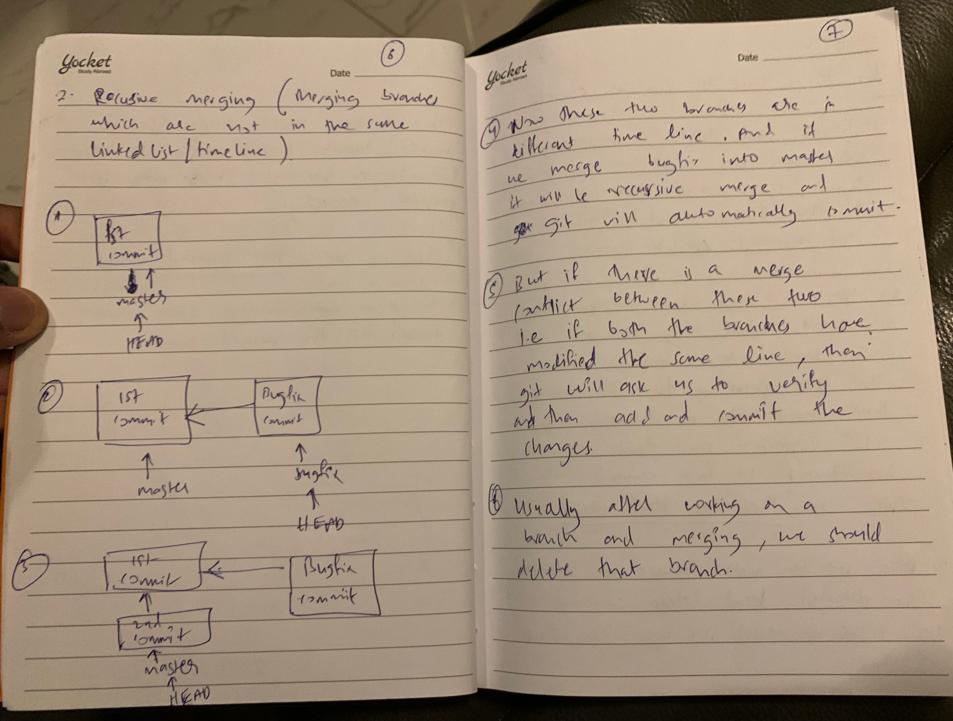 yocket
Study Abroad
6
Date
2. Recusive merging (Merging branches
which are not in the same
linked list / timeline)
1
1st
commit
master
HEAD
2
1st
commit
Bugfix
commit
master
bugfix
HEAD
3
1st
commit
Bugfix
commit
2nd
commit
master
HEAD
yocket
Study Abroad
7
Date
4 Now these two branches are in
different time line. And if
we merge bugfix into master
it will be recursive merge and
git will automatically commit.
5 But if there is a merge
conflict between these two
i.e if both the branches have
modified the same line, then
git will ask us to verify
and then add and commit the
changes.
6 Usually after working on a
branch and merging, we should
delete that branch.